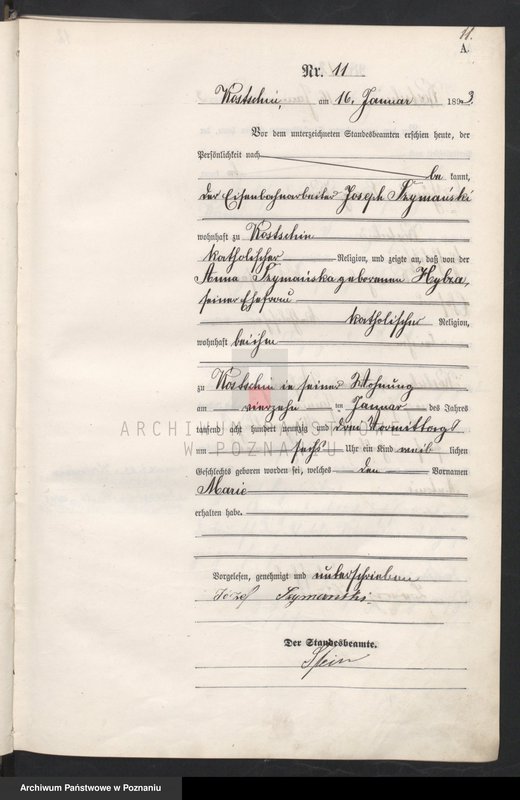 11.
A.
Nr. 11
Kostschin, am 16. Januar 1893.
Vor dem unterzeichneten Standesbeamten erschien heute, der
Persönlichkeit nach
be kannt,
der Eisenbahnarbeiter Joseph Szymański
wohnhaft zu Kostschin
katholischer Religion, und zeigte an, daß von der
Anna Szymańska geborenen Hybza,
seiner Ehefrau
katholischer Religion,
wohnhaft bei ihm
zu Kostschin in seiner Wohnung
am vierzehn ten Januar des Jahres
tausend acht hundert neunzig und drei Vormittags
um sechs Uhr ein Kind weib lichen
Geschlechts geboren worden sei, welches den Vornamen
Marie
erhalten habe.
Vorgelesen, genehmigt und unterschrieben
Józef Szymanski
Der Standesbeamte.
Stein
ARCHIWUM PAŃSTWOWE
W POZNANIU
Archiwum Państwowe w Poznaniu